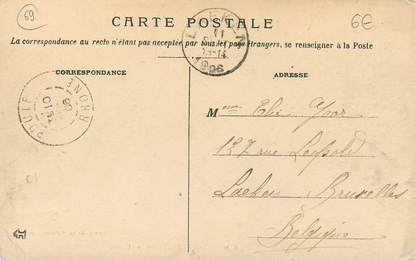 69
6€
CARTE POSTALE
La correspondance au recto n'étant pas acceptée par tous les pays étrangers, se renseigner à la Poste
LAEKEN
11
1906
CORRESPONDANCE
ADRESSE
POULE RHONE
Mme
127 rue Léopold
Laeken Bruxelles
Belgique